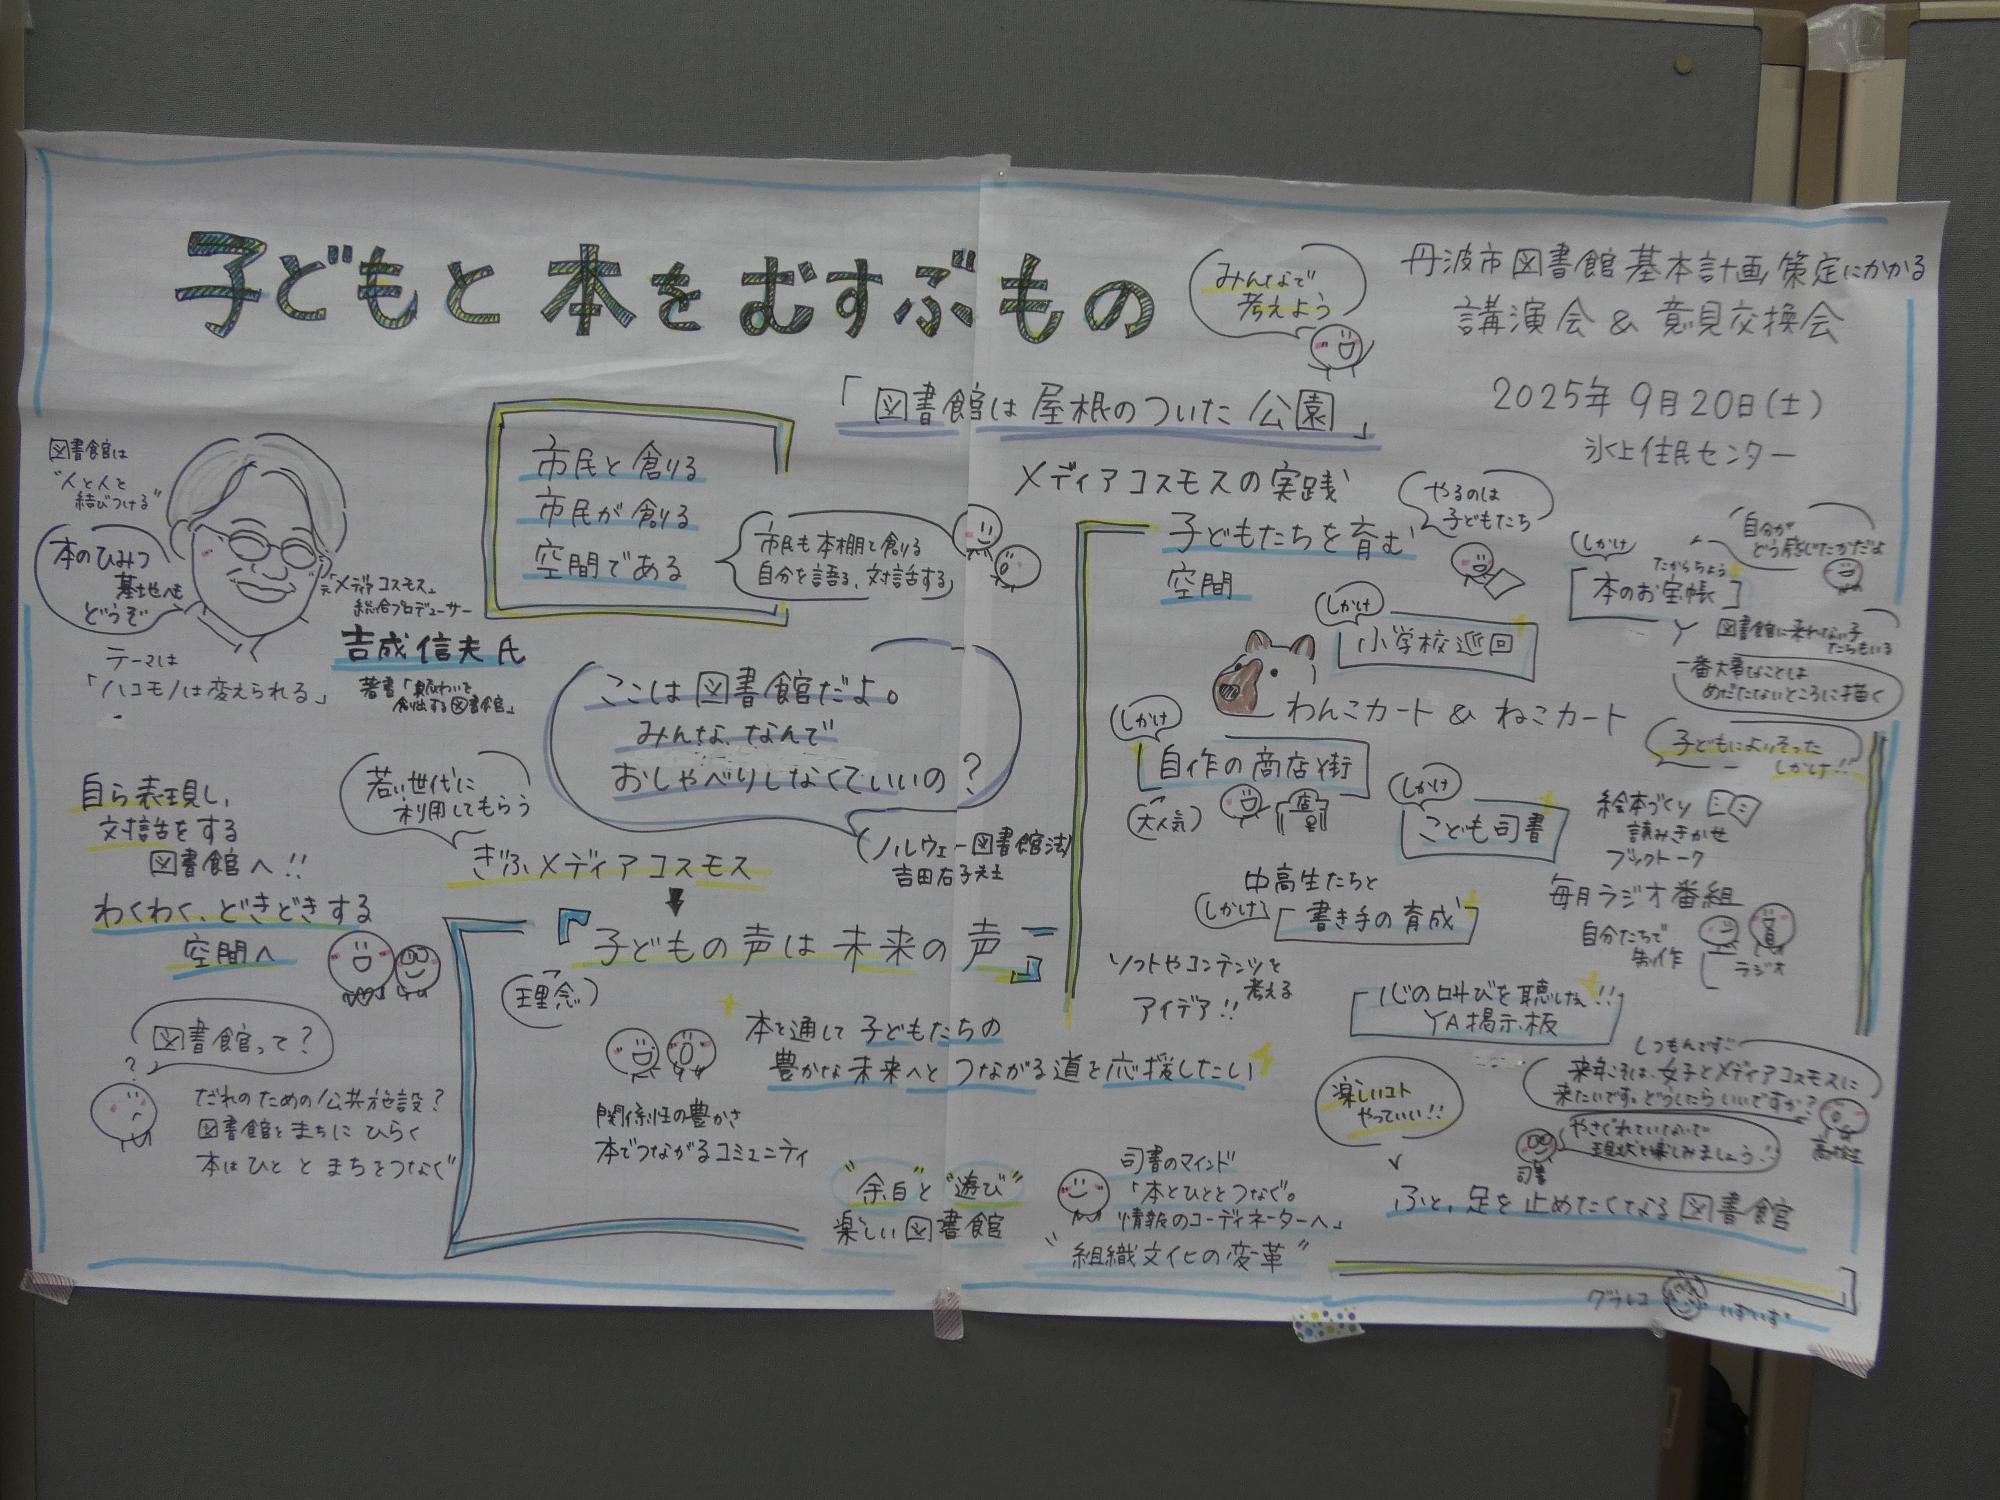 子どもと本をむすぶもの
みんなで
考えよう
丹波市図書館基本計画策定にかかる
講演会&意見交換会
2025年9月20日(土)
氷上住民センター
「図書館は屋根のついた公園」
図書館は
"人と人と
結びつける"
本のひみつ
基地へも
どうぞ
元「メディアコスモス」
総合プロデューサー
吉成信夫氏
著書「賑わいを
創出する図書館」
テーマは
「ハコモノは変えられる」
市民と創る
市民が創る
空間である
市民も本棚を創る
自分を語る、対話する
ここは図書館だよ。
みんな、なんで
おしゃべりしなくていいの?
(ノルウェー図書館法)
吉田右子先生
自ら表現し、
対話をする
図書館へ!!
わくわく、どきどきする
空間へ
若い世代に
利用してもらう
ぎふメディアコスモス
『子どもの声は未来の声』
理念
本を通して子どもたちの
豊かな未来へとつながる道を応援したい
関係性の豊かさ
本でつながるコミュニティ
図書館って?
?
だれのための公共施設?
図書館をまちにひらく
本はひととまちをつなぐ
"余白"と"遊び"
楽しい図書館
司書のマインド
「本とひとをつなぐ。
情報のコーディネーターへ」
"組織文化の変革"
メディアコスモスの実践
子どもたちを育む
空間
やるのは
子どもたち
しかけ
小学校巡回
わんこカート&ねこカート
しかけ
たからちょう
「本のお宝帳」
自分が
どう感じたかだよ
図書館に来れない子
たちもいる
一番大事なことは
めだたないところに描く
子どもによりそった
しかけ!!
しかけ
自作の商店街
大人気
しかけ
こども司書
絵本づくり
読みきかせ
ブックトーク
毎月ラジオ番組
自分たちで
制作
ラジオ
中高生たちと
しかけ
「書き手の育成」
ソフトやコンテンツを
考える
アイデア!!
心の叫びを聴けぇ!!
YA掲示板
しつもんですご
来年こそは、女子とメディアコスモスに
来たいです。どうしたらいいですか?
高校生
やさぐれていないで
現状を楽しみましょう!!
司書
楽しいコト
やっていい!!
ふと、足を止めたくなる図書館
グラレコ